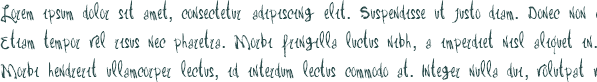 Lorem ipsum dolor sit amet, consectetur adipiscing elit. Suspendisse ut justo diam. Donec non
Etiam tempor vel risus nec pharetra. Morbi fringilla luctus nibh, a imperdiet nisl aliquet in.
Morbi hendrerit ullamcorper lectus, id interdum lectus commodo at. Integer nulla dui, volutpat